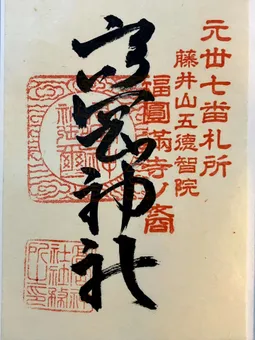 元丗七番札所
藤井山五徳智院
福圓満寺ノ裔
高岡神社